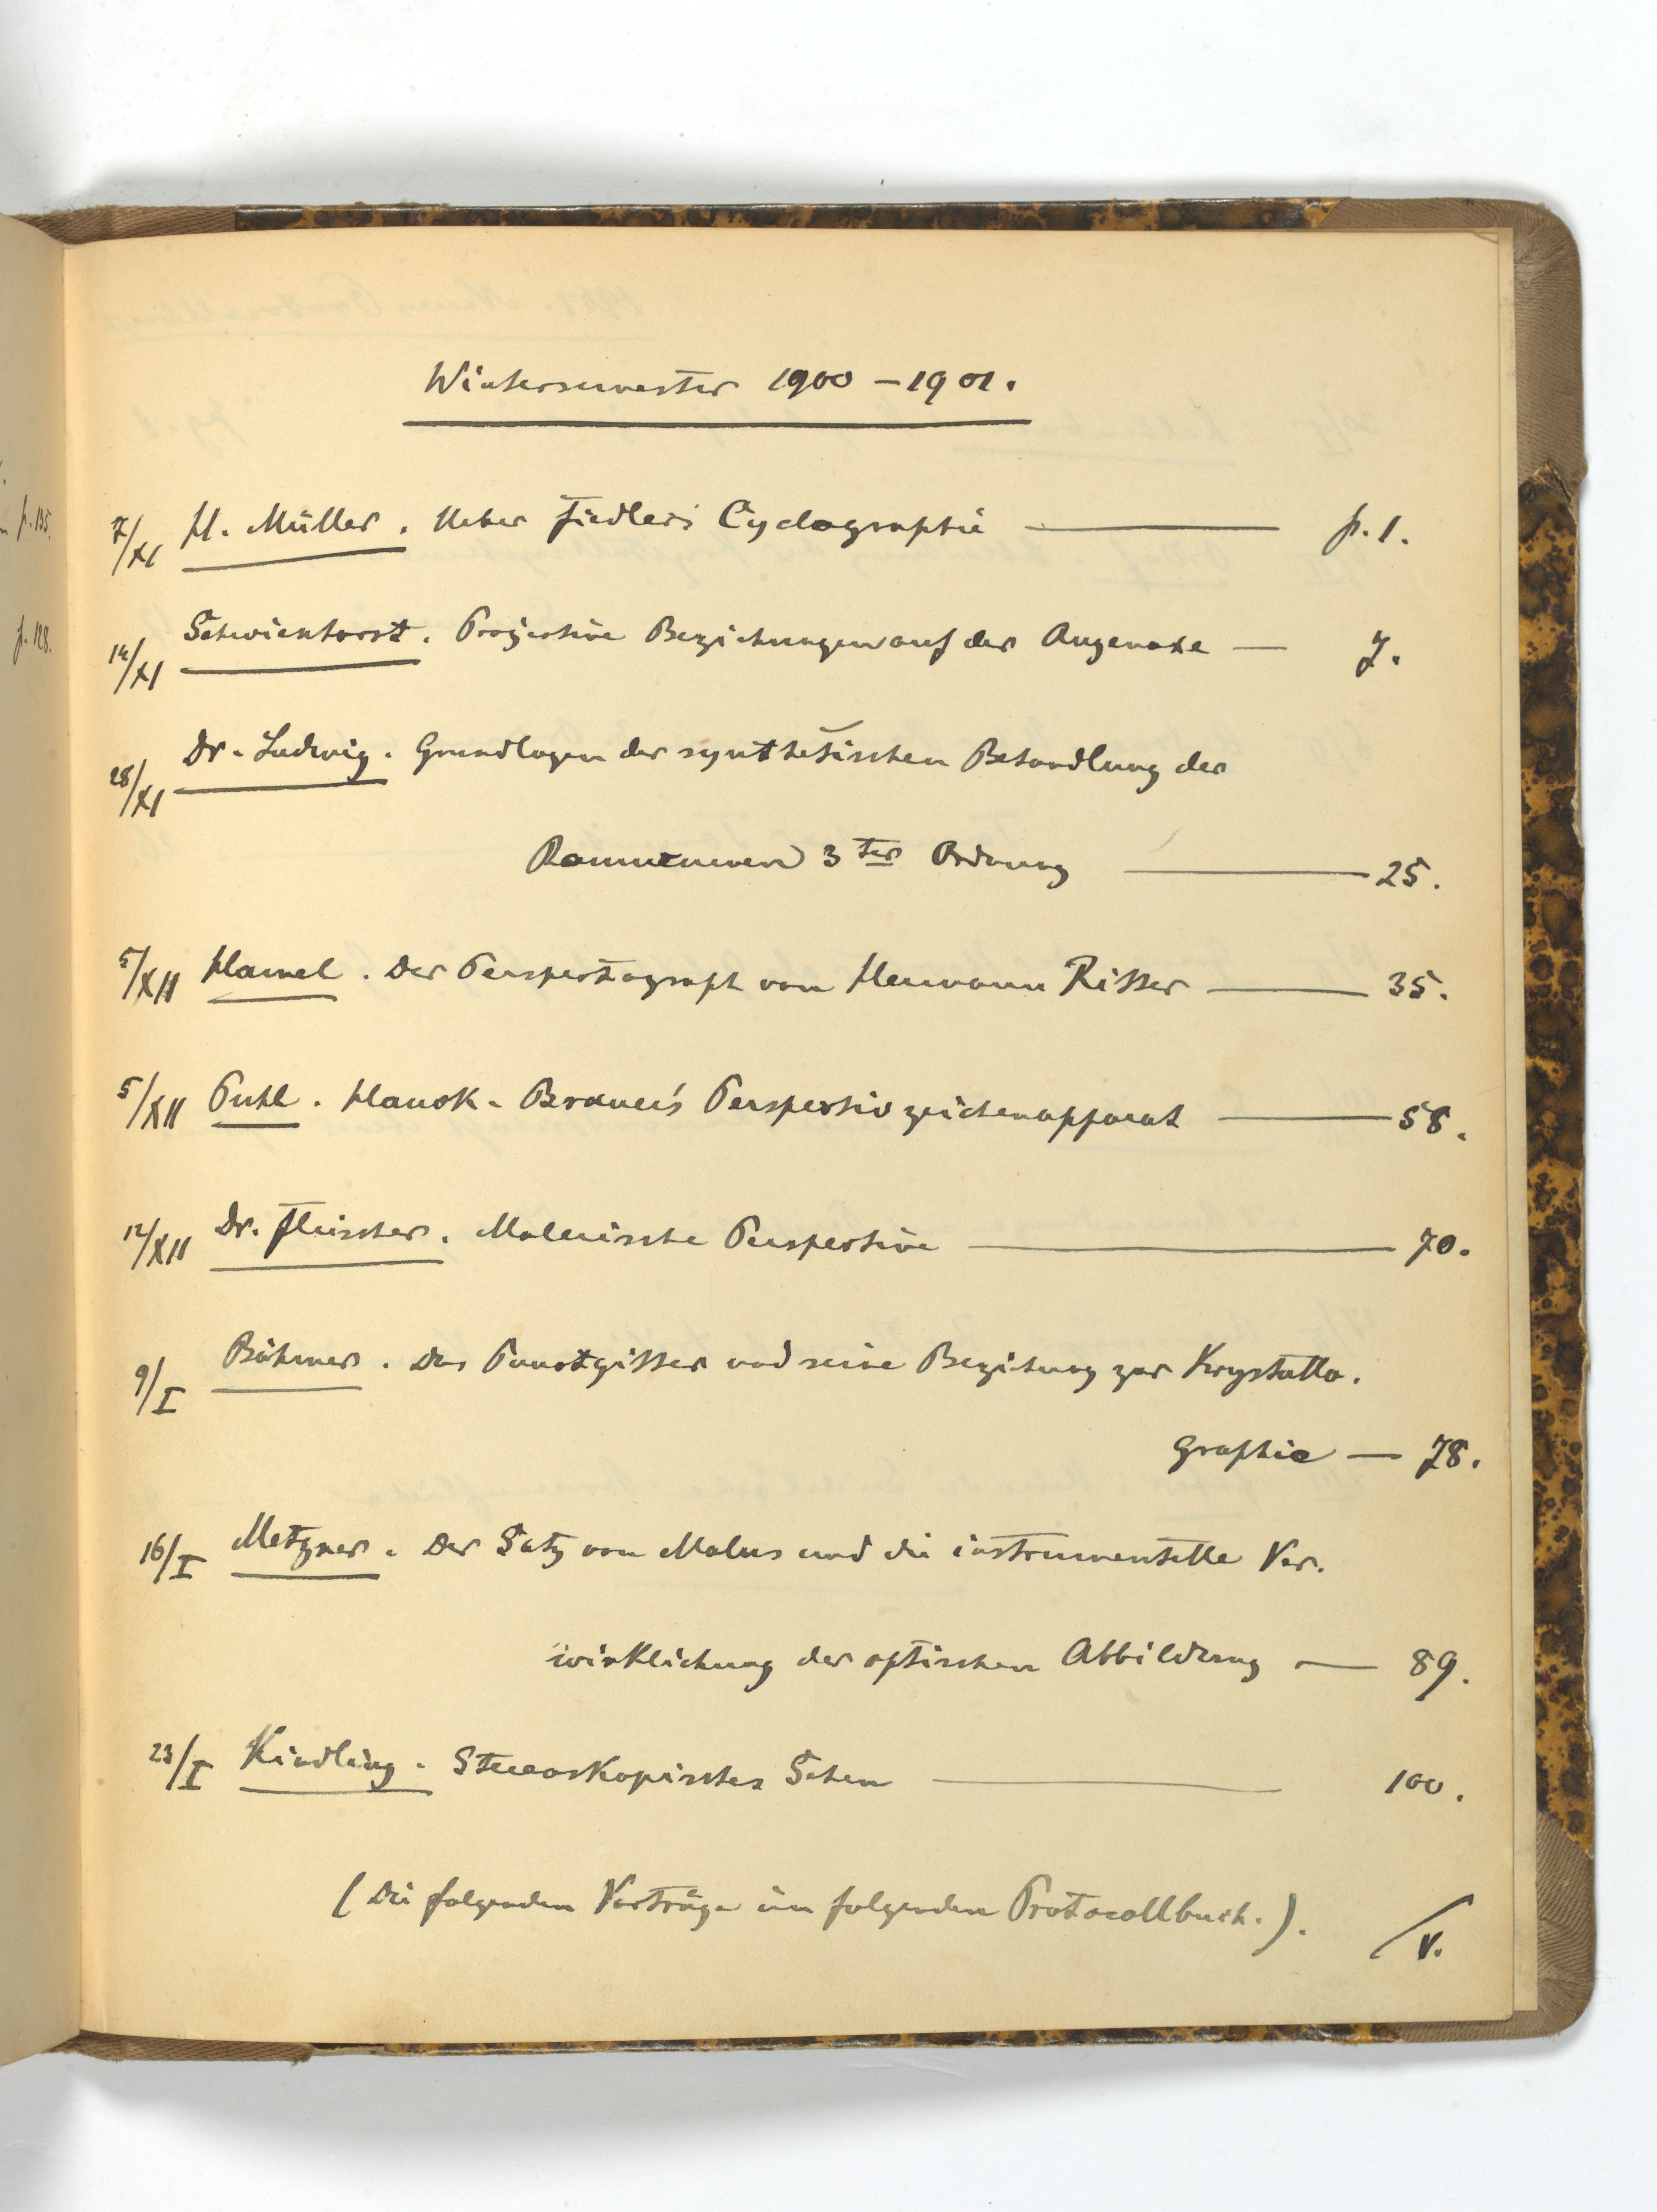 Wintersemester 1900 – 1901.
7/XI H. Müller. Ueber Fiedler's Cyclographie — p. 1.
14/XI Schwienhorst. Projective Beziehungen auf der Augenaxe — 7.
28/XI Dr. Ludwig. Grundlagen der synthetischen Behandlung der
Raumcurven 3ter Ordnung — 25.
5/XII Hamel. Der Perspectograph von Hermann Ritter — 35.
5/XII Puhl. Hauck-Brauer's Perspectivzeichenapparat — 58.
12/XII Dr. Fleischer. Malerische Perspective — 70.
9/I Böhmer. Das Punctgitter und seine Beziehung zur Krystallo-
graphie — 78.
16/I Metzner. Der Satz von Malus und die instrumentelle Ver-
wirklichung der optischen Abbildung — 89.
23/I Kindling. Stereoskopisches Sehen — 100.
(Die folgenden Vorträge im folgenden Protocollbuch.). /V.
p. 135.
p. 128.